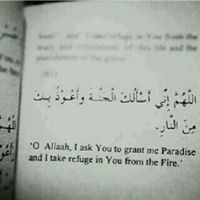 and I take refuge in You from the
and tribulations of this life and the
punishment of the grave
(61)
اللَّهُمَّ إِنِّي أَسْأَلُكَ الْجَنَّةَ وَأَعُوذُ بِكَ
مِنَ النَّارِ.
‘O Allaah, I ask You to grant me Paradise
and I take refuge in You from the Fire.’